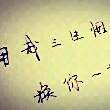 用我三生烟
换你一